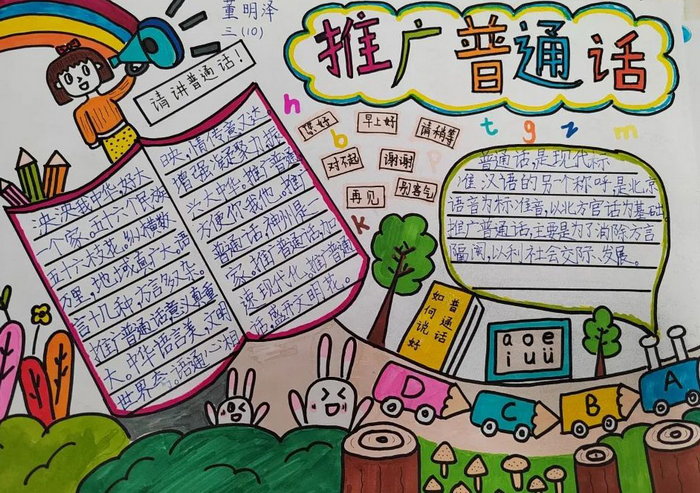 董明泽
三(10)
推广普通话
请讲普通话!
您好
早上好
请稍等
对不起
谢谢
再见
别客气
h
b
p
t
g
z
m
k
泱泱我中华,好大
一个家。五十六个民族
五十六枝花。纵横数
万里,地域真广大。语
言十几种,方言多繁杂。
推广普通话,意义重
大。中华语言美,文明
世界夸。语通心相
映,情传意又达
增强凝聚力,振
兴大中华。推广普通
方便你我他。推
普通话,神州是一
家。推普通话
说现代化。推普通
话,盛开文明花。
普通话,是现代标
准汉语的另个称呼,是北京
语音为标准音,以北方官话为基础
推广普通话,主要是为了消除方言
隔阂,以利社会交际、发展。
普通话
如何说好
a o e
i u ü
D C B A